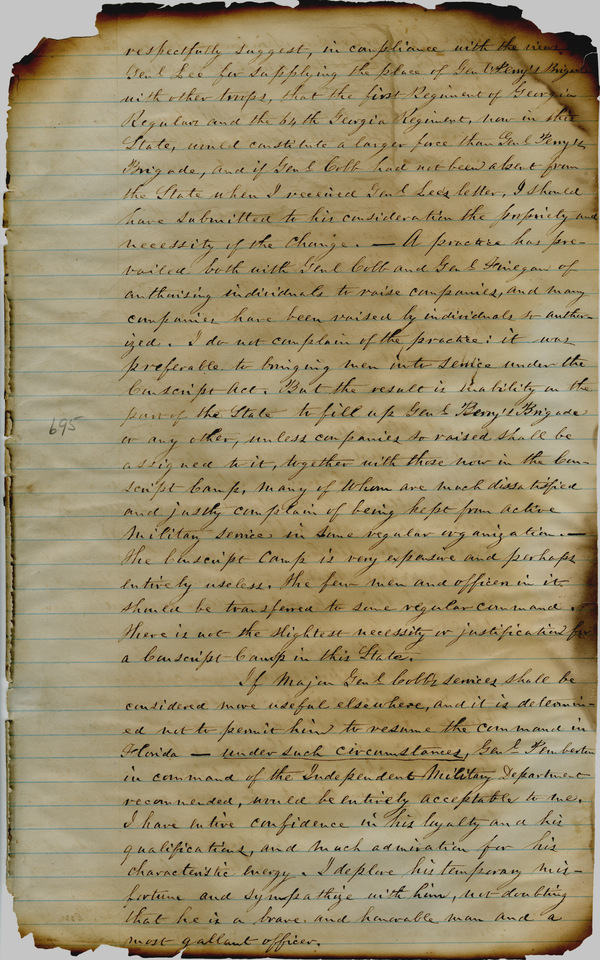 respectfully suggest, in compliance with the views
Genl Lee for supplying the place of Genl Perry's Brigade
with other troops, that the first Regiment of Georgia
Regulars and the 64th Georgia Regiment, now in this
State, would constitute a larger force than Genl Perry's
Brigade, and if Genl Cobb had not been absent from
the State when I received Genl Lee's letter, I should
have submitted to his consideration the propriety and
necessity of the change. — A practice has pre-
vailed both with Genl Cobb and Genl Finegan of
authorising individuals to raise companies, and many
companies have been raised by individuals so author-
ized. I do not complain of the practice: it was
preferable to bringing men into service under the
Conscript Act. But the result is inability on the
part of the State to fill up Genl Perry's Brigade
695
or any other, unless companies so raised shall be
assigned to it, together with those now in the Con-
script Camp, many of whom are much dissatisfied
and justly complain of being kept from active
military service in some regular organization. —
The Conscript Camp is very expensive and perhaps
entirely useless. The few men and officers in it
should be transferred to some regular command.
There is not the slightest necessity or justification for
a Conscript Camp in this State.
If Major Genl Cobb's services shall be
considered more useful elsewhere, and it is determin-
ed not to permit him to resume the command in
Florida — under such circumstances, Genl Pemberton
in command of the Independent Military Department
recommended, would be entirely acceptable to me.
I have entire confidence in his loyalty and his
qualifications, and much admiration for his
characteristic energy. I deplore his temporary mis-
fortune and sympathize with him, not doubting
that he is a brave and honorable man and a
most gallant officer.